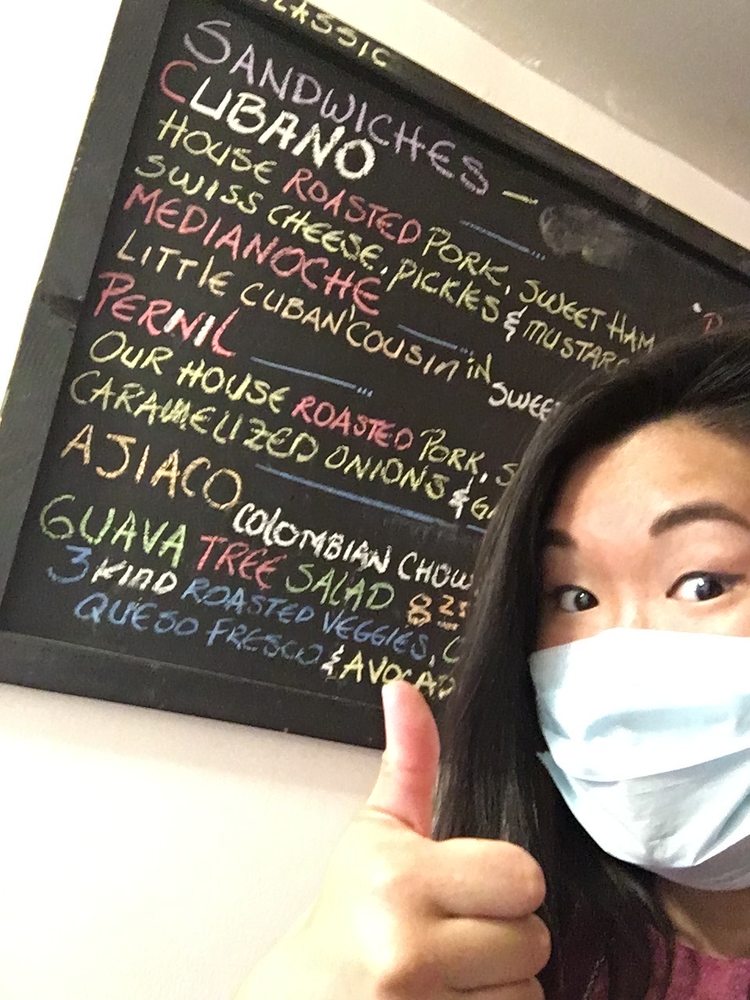 CLASSIC
SANDWICHES –
CUBANO
HOUSE ROASTED PORK, SWEET HAM
SWISS CHEESE, PICKLES & MUSTARD
MEDIANOCHE
LITTLE CUBAN COUSIN IN SWEET
PERNIL
OUR HOUSE ROASTED PORK, S
CARAMELIZED ONIONS & GA
AJIACO
COLOMBIAN CHOW
GUAVA TREE SALAD 8 25
3 KIND ROASTED VEGGIES, C
QUESO FRESCO & AVOCAD